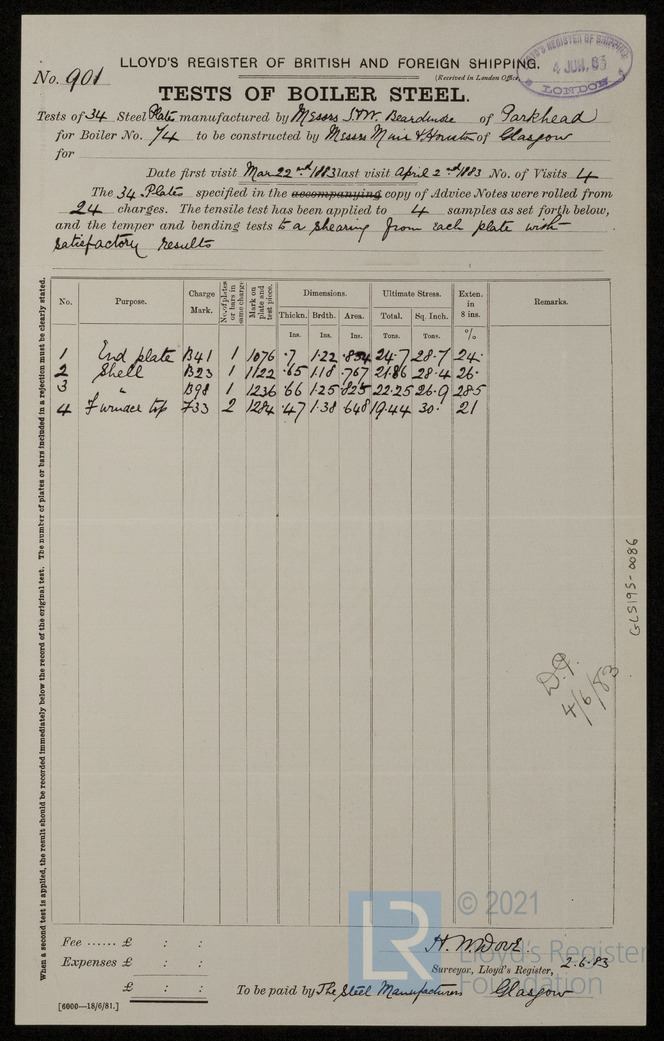 LLOYD'S REGISTER OF BRITISH AND FOREIGN SHIPPING.
No. 901
(Received in London Office,
LLOYD'S REGISTER OF SHIPPING
4 JUN. 83
LONDON
TESTS OF BOILER STEEL.
Tests of 34 Steel Plates manufactured by Messrs Beardmore of Parkhead
for Boiler No. 74 to be constructed by Messrs Muir & Houston of Glasgow
for
Date first visit Mar 22nd 1883 last visit April 2nd 1883 No. of Visits 4
The 34 Plates specified in the accompanying copy of Advice Notes were rolled from
24 charges. The tensile test has been applied to 4 samples as set forth below,
and the temper and bending tests to a shearing from each plate with
satisfactory results
No. Purpose. Charge Mark. No. of plates or bars in same charge Mark on plate and test piece. Dimensions. Ultimate Stress. Exten. in 8 ins. Remarks.
Thickn. Brdth. Area. Total. Sq. Inch.
Ins. Ins. Ins. Tons. Tons. %
1 End plate B41 1 1076 .7 1.22 .854 24.7 28.7 24.
2 Shell B23 1 1122 .65 1.18 .767 21.86 28.4 26.
3 " B98 1 1236 .66 1.25 .825 22.25 26.9 28.5
4 Furnace top 733 2 1284 .47 1.38 .648 19.44 30. 21
When a second test is applied, the result should be recorded immediately below the record of the original test. The number of plates or bars included in a rejection must be clearly stated.
GLS195-0086
4/6/83
Fee ...... £ : :
Expenses £ : :
£ : :
H. W. Dove.
Surveyor, Lloyd's Register, 2.6.83
To be paid by The Steel Manufacturers Glasgow
[6000—18/6/81.]
LR
© 2021
Lloyd's Register
Foundation